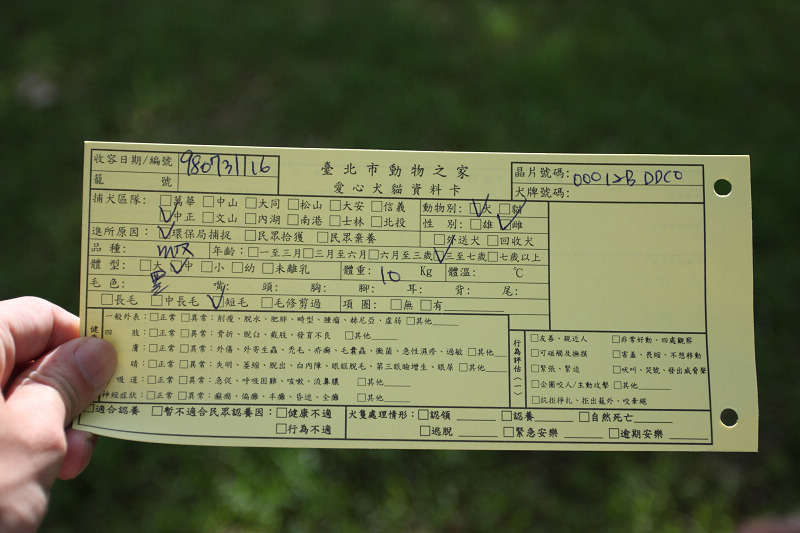 收容日期/編號 980731116
籠 號
臺北市動物之家
愛心犬貓資料卡
晶片號碼: 00012B DDC0
犬牌號碼:
捕犬區隊: □萬華 □中山 □大同 □松山 □大安 □信義
☑中正 □文山 □內湖 □南港 □士林 □北投
動物別: ☑犬 □貓
性 別: □雄 ☑雌
進所原因: ☑環保局捕捉 □民眾拾獲 □民眾棄養 □外送犬 □回收犬
品 種: MIX 年齡: □一至三月 □三月至六月 □六月至三歲 ☑三至七歲 □七歲以上
體 型: □大 ☑中 □小 □幼 □未離乳 體重: 10 Kg 體溫: ℃
毛 色: 黑 嘴: 頭: 胸: 腳: 耳: 背: 尾:
□長毛 □中長毛 ☑短毛 □毛修剪過 項 圈: □無 □有
一般外表: □正常 □異常: 削瘦、脫水、肥胖、畸型、腫瘤、赫尼亞、虛弱 □其他
四 肢: □正常 □異常: 骨折、脫臼、截肢、發育不良 □其他
膚: □正常 □異常: 外傷、外寄生蟲、禿毛、疥癬、毛囊蟲、黴菌、急性濕疹、過敏 □其他
睛: □正常 □異常: 失明、萎縮、脫出、白內障、眼瞼脫毛、第三眼瞼增生、眼屎 □其他
吸 道: □正常 □異常: 急促、呼吸困難、咳嗽、流鼻膿 □其他
神經症狀: □正常 □異常: 癲癇、偏癱、半癱、昏迷、全癱 □其他
健
行為評估(一)
□友善、親近人 □非常好動、四處觀察
□可碰觸及撫摸 □害羞、畏縮、不想移動
□緊張、緊迫 □吠叫、哭號、發出威脅聲
□企圖咬人/主動攻擊 □其他
□抗拒掙扎、拒出籠外、咬牽繩
□適合認養 □暫不適合民眾認養因: □健康不適
□行為不適
犬隻處理情形: □認領 □認養 □自然死亡
□逃脫 □緊急安樂 □逾期安樂